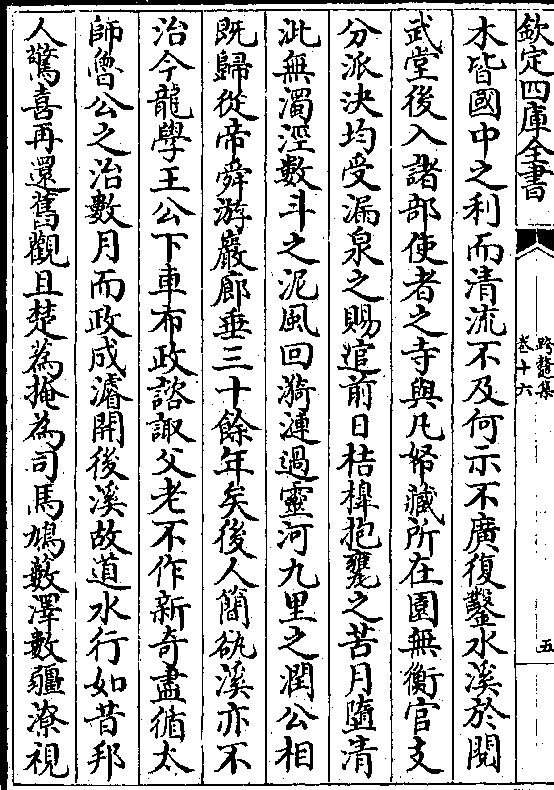 欽定四庫全書
跨鼇集
卷十六
五
木皆國中之利而清流不及何示不廣復鑿水溪於閲
武堂後入諸部使者之寺與凡帑藏所在園無衡官支
分派决均受漏泉之賜逭前日桔橰抱甕之苦月墮清
泚無濁涇數斗之泥風回漪漣過靈河九里之潤公相
既歸從帝舜游巖廊垂三十餘年矣後人簡㰸溪亦不
治今龍學王公下車布政諮諏父老不作新奇盡循太
師魯公之治數月而政成濬開後溪故道水行如昔邦
人驚喜再還舊觀且楚蒍掩為司馬鳩藪澤數疆潦視